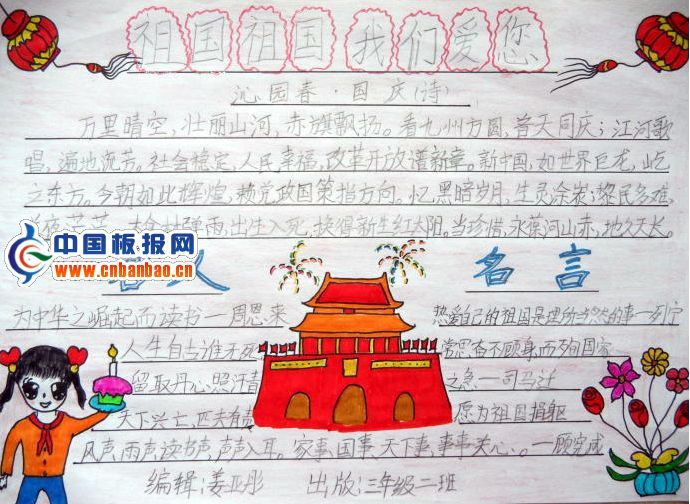 祖国祖国我们爱您
沁园春·国庆(诗)
万里晴空,壮丽山河,赤旗飘扬。看九州方圆,普天同庆;江河歌
唱,遍地流芳。社会稳定,人民幸福,改革开放谱新章。新中国,如世界巨龙,屹
立东方。今朝如此辉煌,赖党政国策指方向。忆,黑暗岁月,生灵涂炭;黎民多难,
弹雨,出生入死,换得新生红太阳。当珍惜,永葆河山赤,地久天长。
中国板报网
www.cnbanbao.cn
名言
为中华之崛起而读书—周恩来
热爱自己的祖国是理所当然的事—列宁
人生自古谁无死
常思奋不顾身而殉国家
留取丹心照汗青
之急—司马迁
天下兴亡,匹夫有责
愿为祖国捐躯
风声,雨声,读书声,声声入耳。家事,国事,天下事,事事关心。—顾完成
编辑:姜亚彤 出版:三年级二班